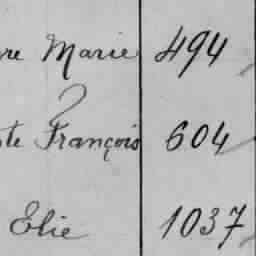 re Marie 494
te François 604
Elie 1037